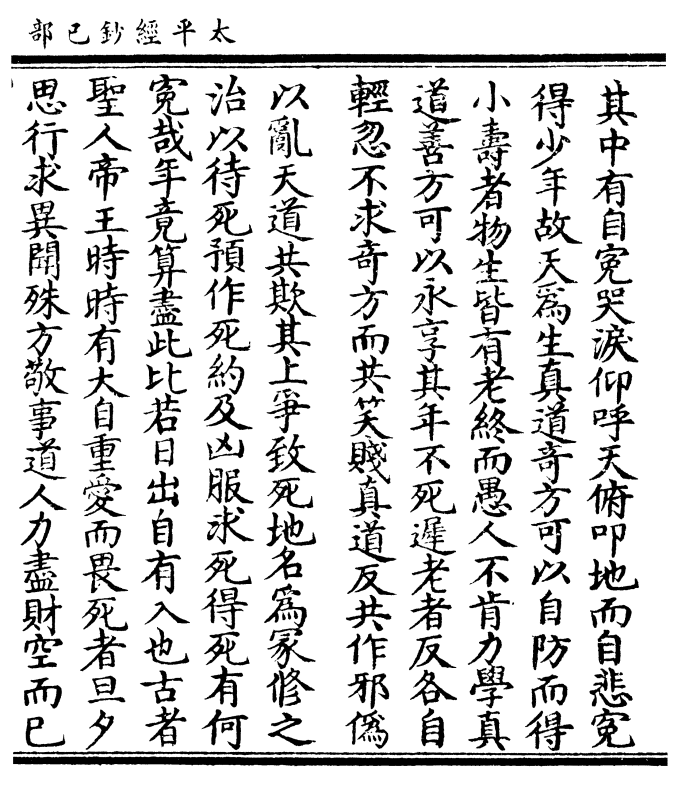 太平經鈔己部
其中有自寃哭淚仰呼天俯叩地而自悲寃
得少年故天爲生真道奇方可以自防而得
小壽者物生皆有老終而愚人不肯力學真
道善方可以永享其年不死遲老者反各自
輕忽不求奇方而共笑賤真道反共作邪僞
以亂天道共欺其上爭致死地名爲冢修之
治以待死預作死約及凶服求死得死有何
寃哉年竟算盡此比若日出自有入也古者
聖人帝王時時有大自重愛而畏死者旦夕
思行求異聞殊方敬事道人力盡財空而已